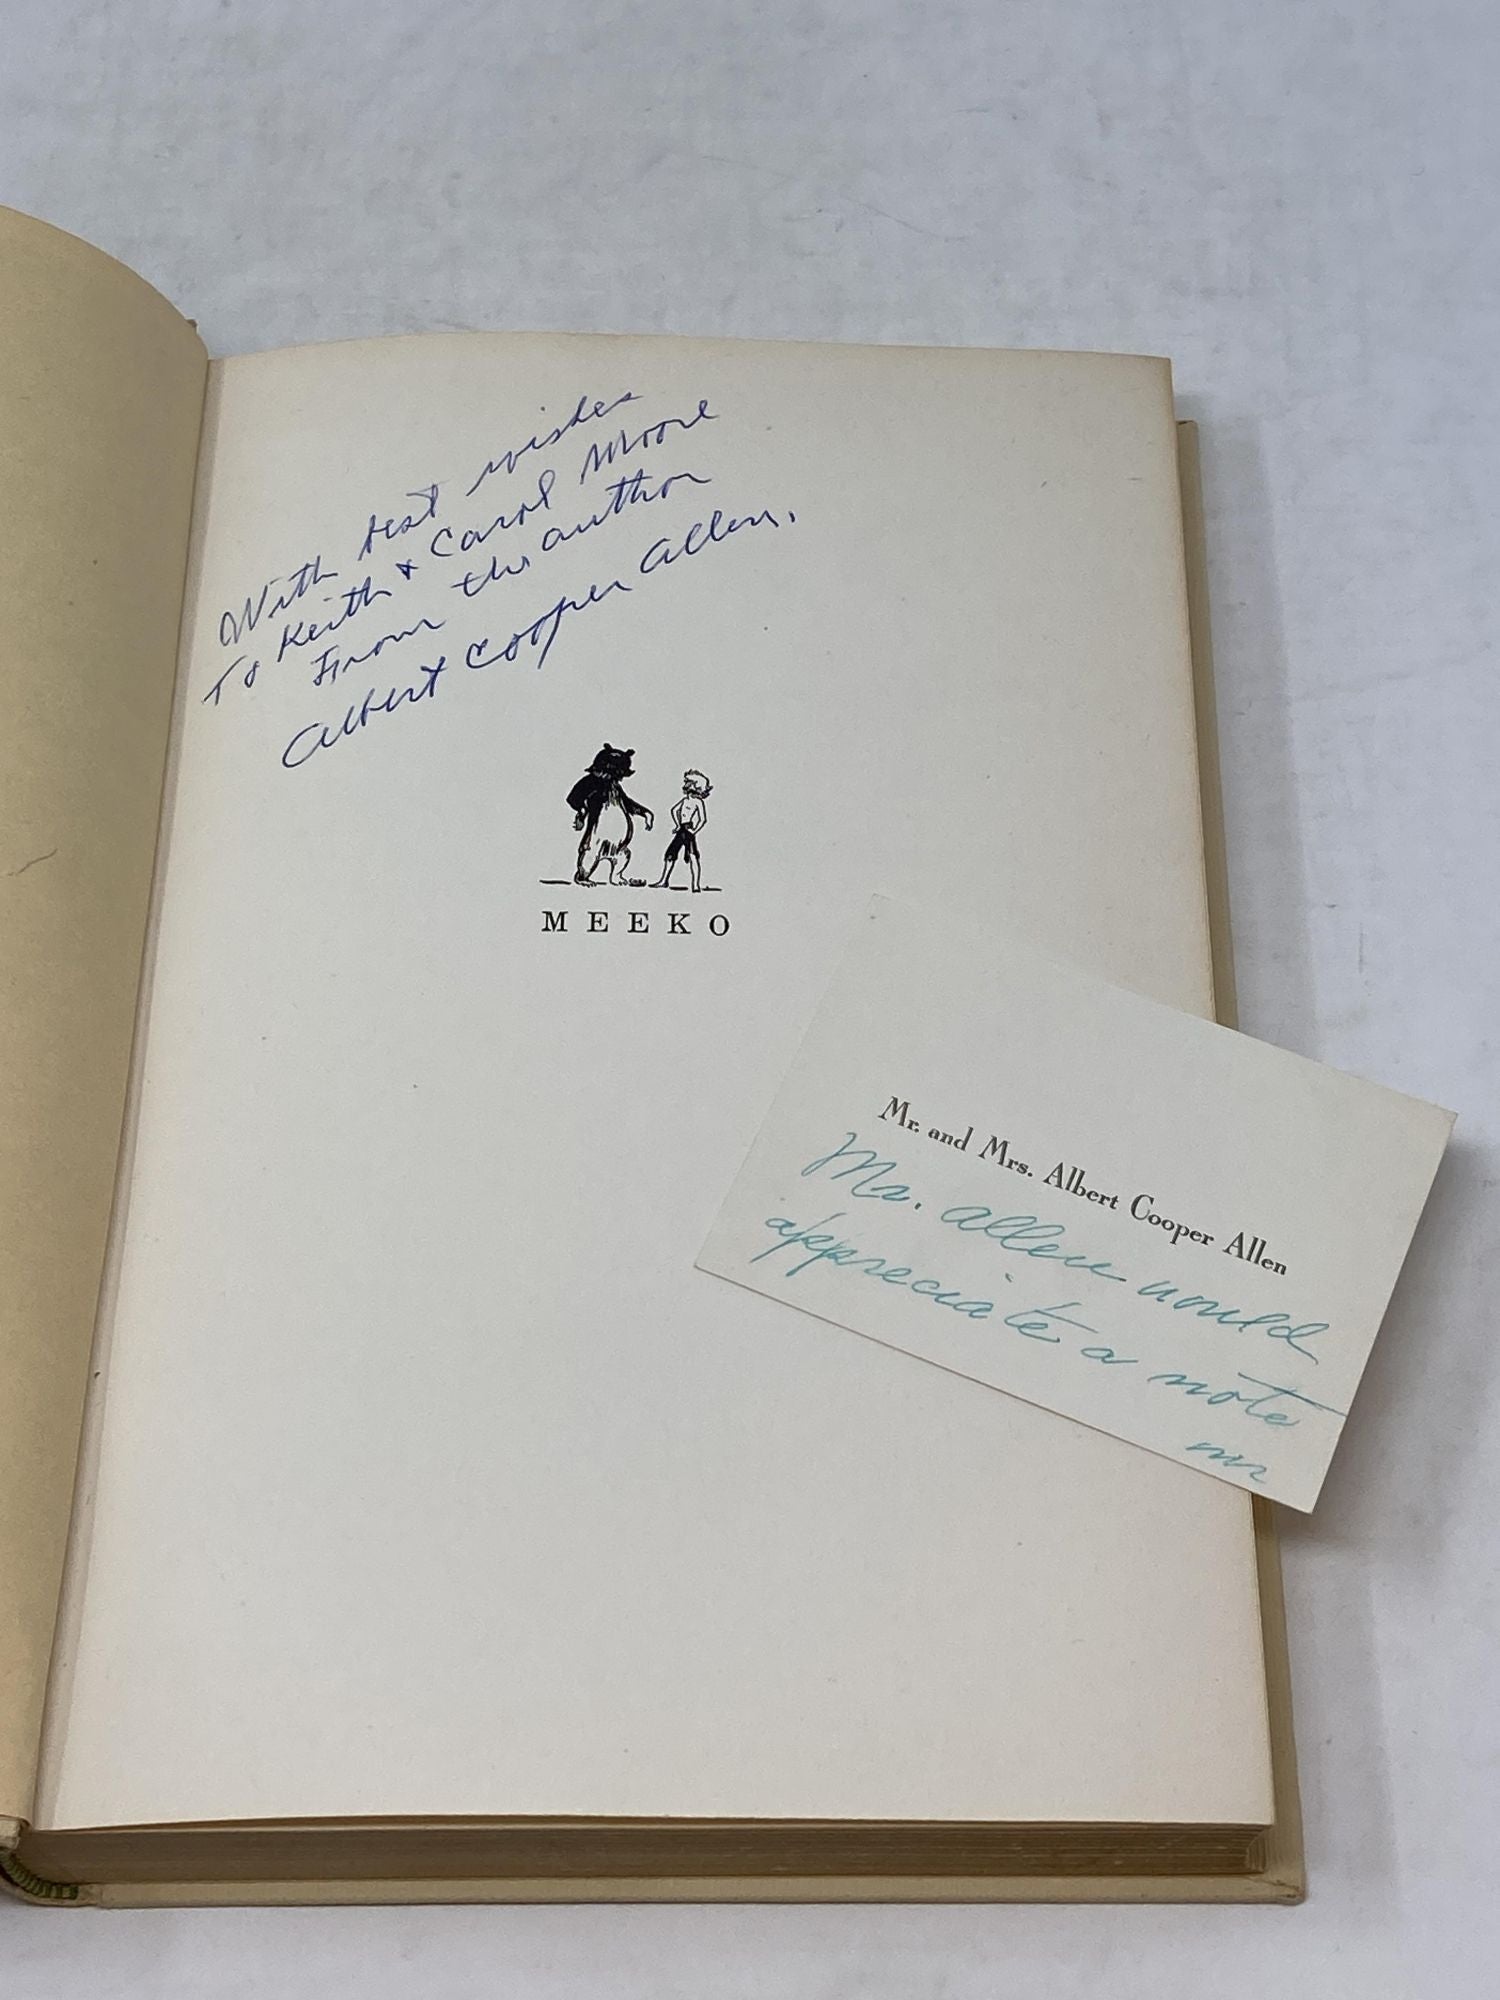 With best wishes
To Keith + Carol Moore
From the author
Albert Cooper Allen.
MEEKO
Mr. and Mrs. Albert Cooper Allen
Mr. Allen would
appreciate a note